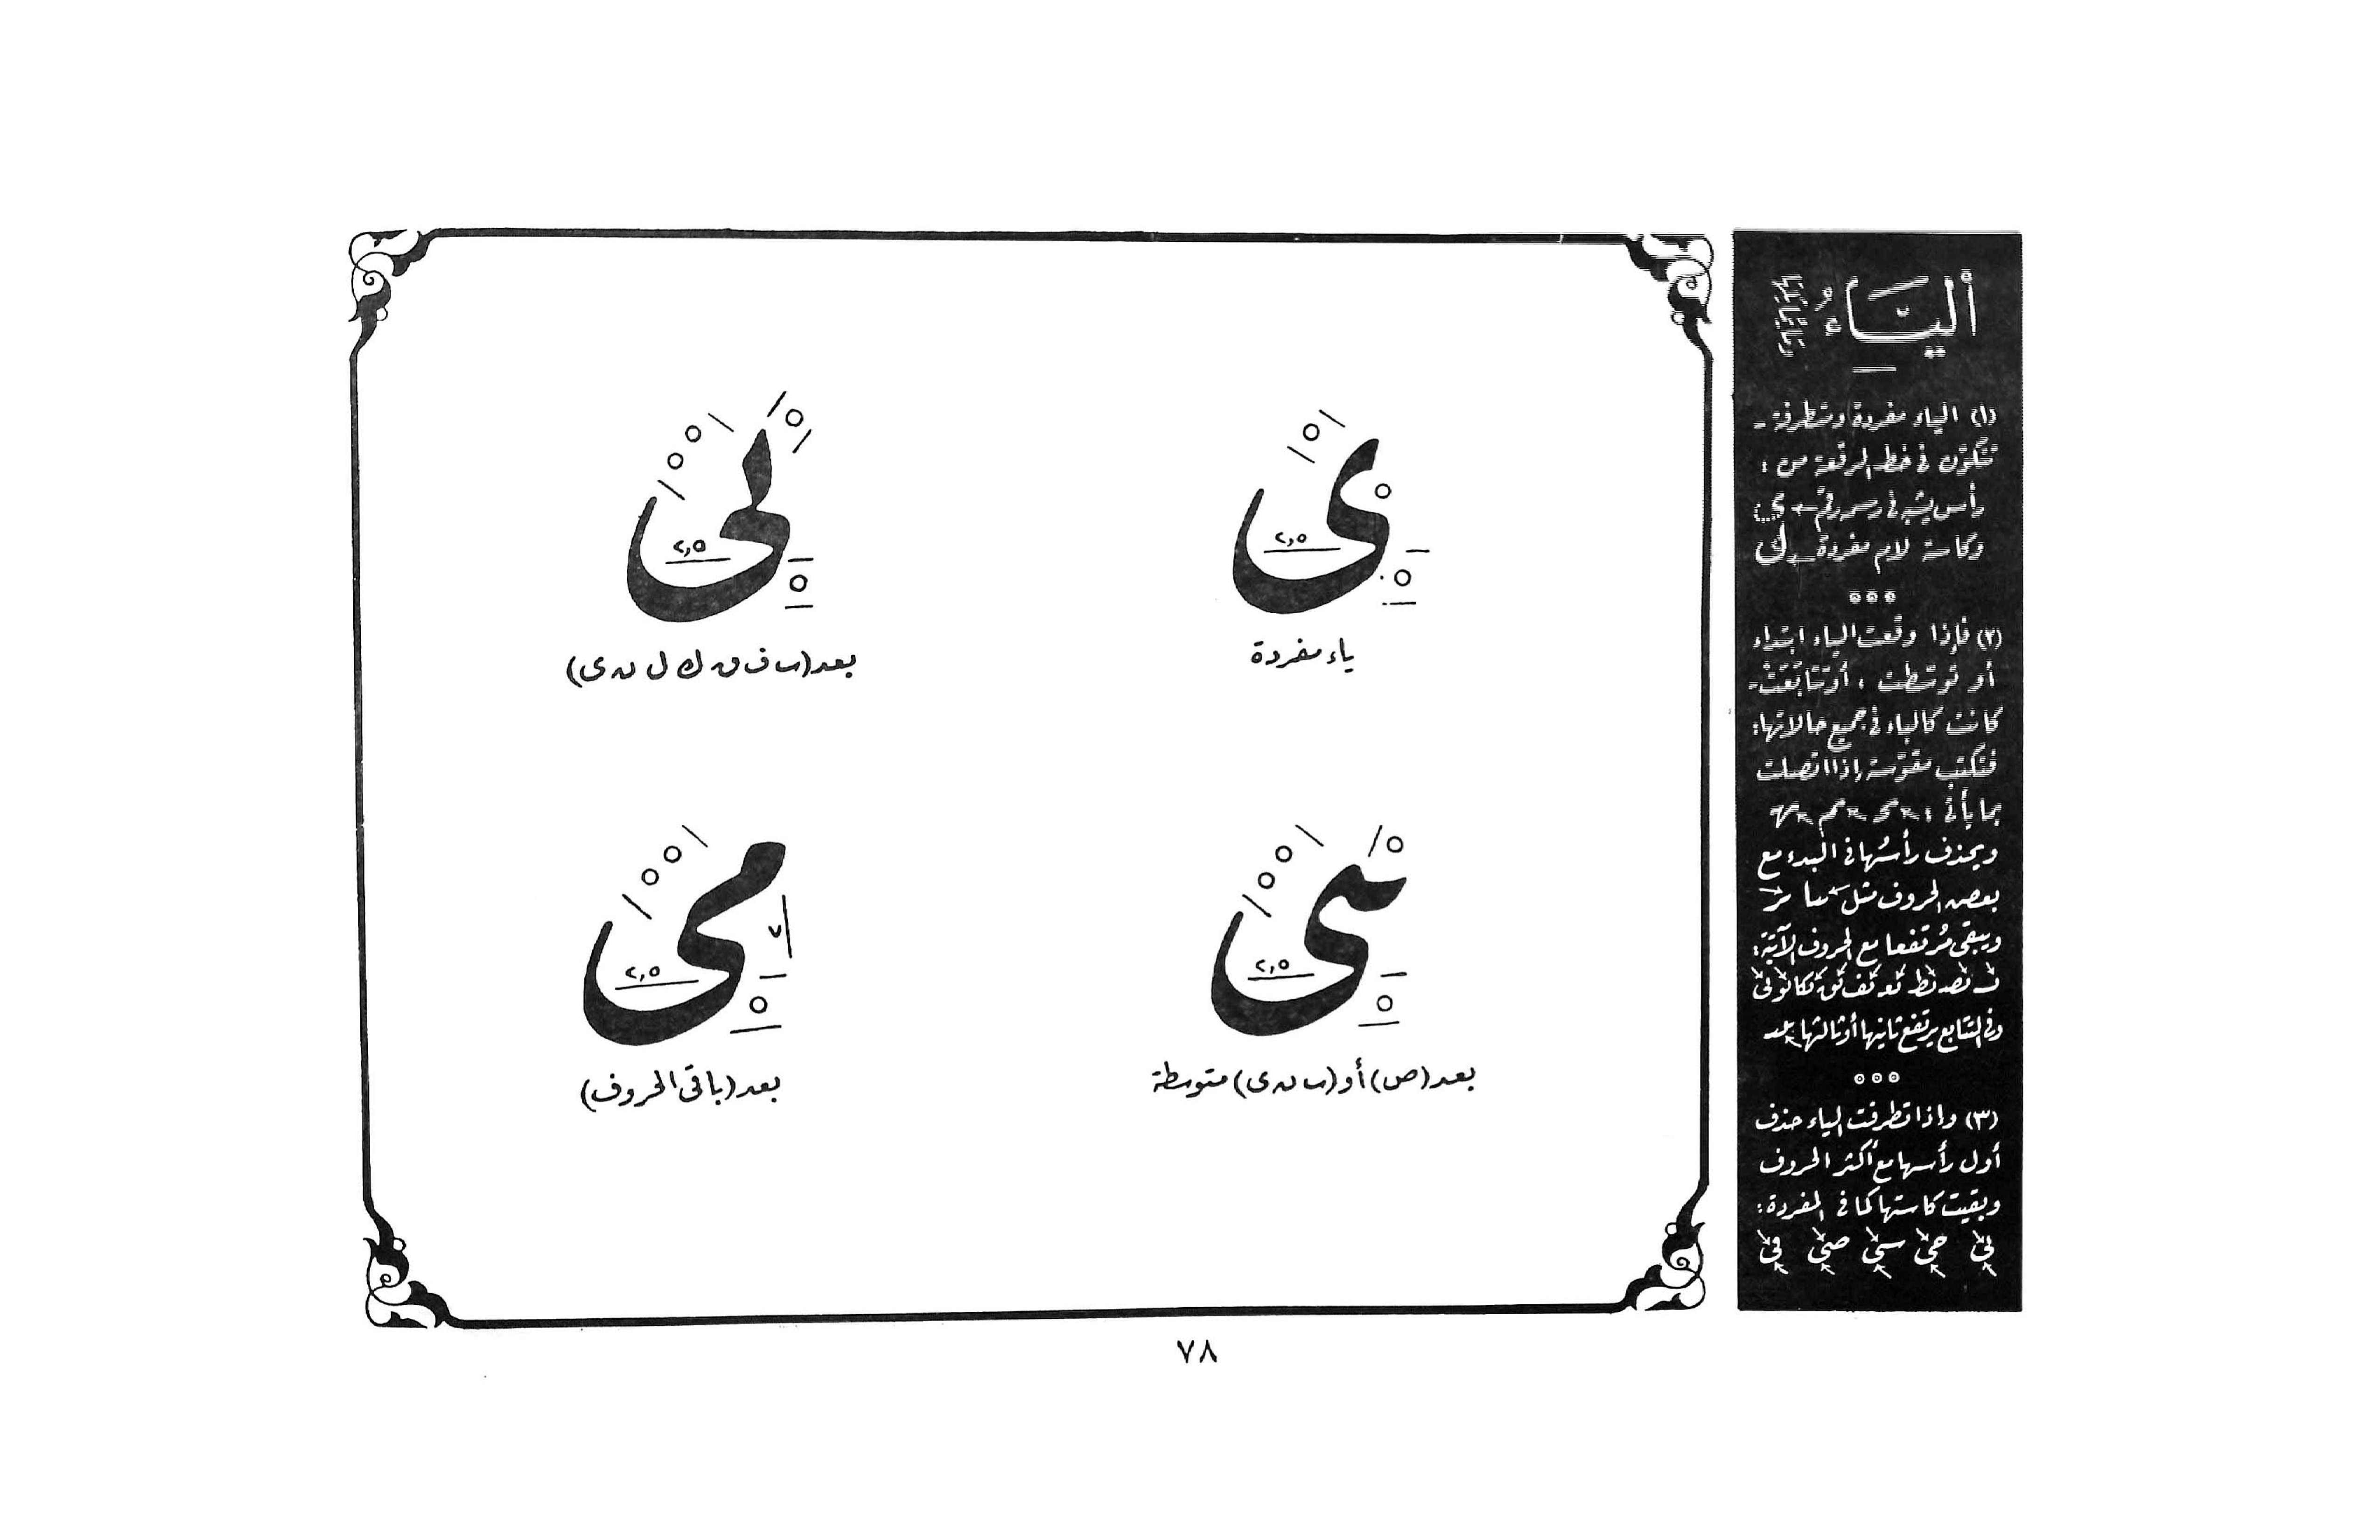 ألياءُ
(١) الياء مفردة ومتطرفة -
تتكوّن في خط الرقعة من :
رأس يشبه في رسمه رقم ← ى
وكاسة لام مفردة ← ل
(٢) فإذا وقعت الياء ابتداء
أو توسّطت ، أو تتابعت -
كانت كالباء في جميع حالاتها :
فتكتب مقوّسة إذا اتصلت
بما يأتي :
ويحذف رأسُها في البدء مع
بعض الحروف مثل
ويبقى مُرتفعا مع الحروف الآتية :
وفي التتابع يرتفع ثانيها أو ثالثها
(٣) وإذا تطرفت الياء حذف
أول رأسها مع أكثر الحروف
وبقيت كاستها كما في المفردة :
لى حى سى صى فى
ى
٢,٥
ياء مفردة
لى
٢,٥
بعد (ب ف ق ك ل ن ى)
سى
٢,٥
بعد (ص) أو (ب ن ى) متوسطة
محى
٧
٢,٥
بعد (باقى الحروف)
٧٨